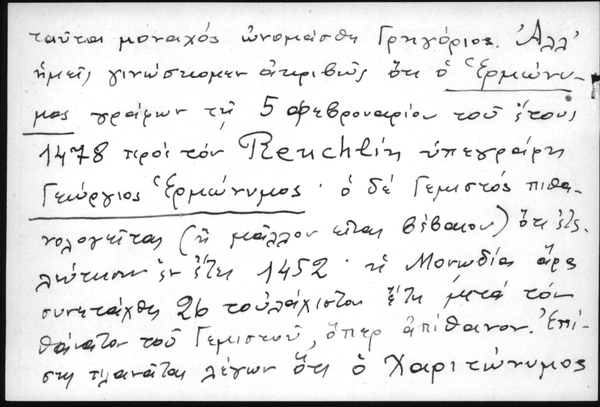 ταῦτα μοναχός ὠνομάσθη Γρηγόριος. Ἀλλ'
ἡμεῖς γινώσκομεν ἀκριβῶς ὅτι ὁ Ἑρμώνυ-
μος γράφων τῇ 5 φεβρουαρίου τοῦ ἔτους
1478 πρός τόν Reuchlin ὑπεγράφη
Γεώργιος Ἑρμώνυμος· ὁ δέ Γεμιστός πιθα-
νολογεῖται (ἤ μᾶλλον εἶναι βέβαιον) ὅτι ἐτε-
λεύτησεν ἐν ἔτει 1452· ἡ Μονωδία ἄρα
συνετάχθη 26 τοὐλάχιστον ἔτη μετά τόν
θάνατον τοῦ Γεμιστοῦ, ὅπερ ἀπίθανον. Ἐπί-
σης πλανᾶται λέγων ὅτι ὁ Χαριτώνυμος